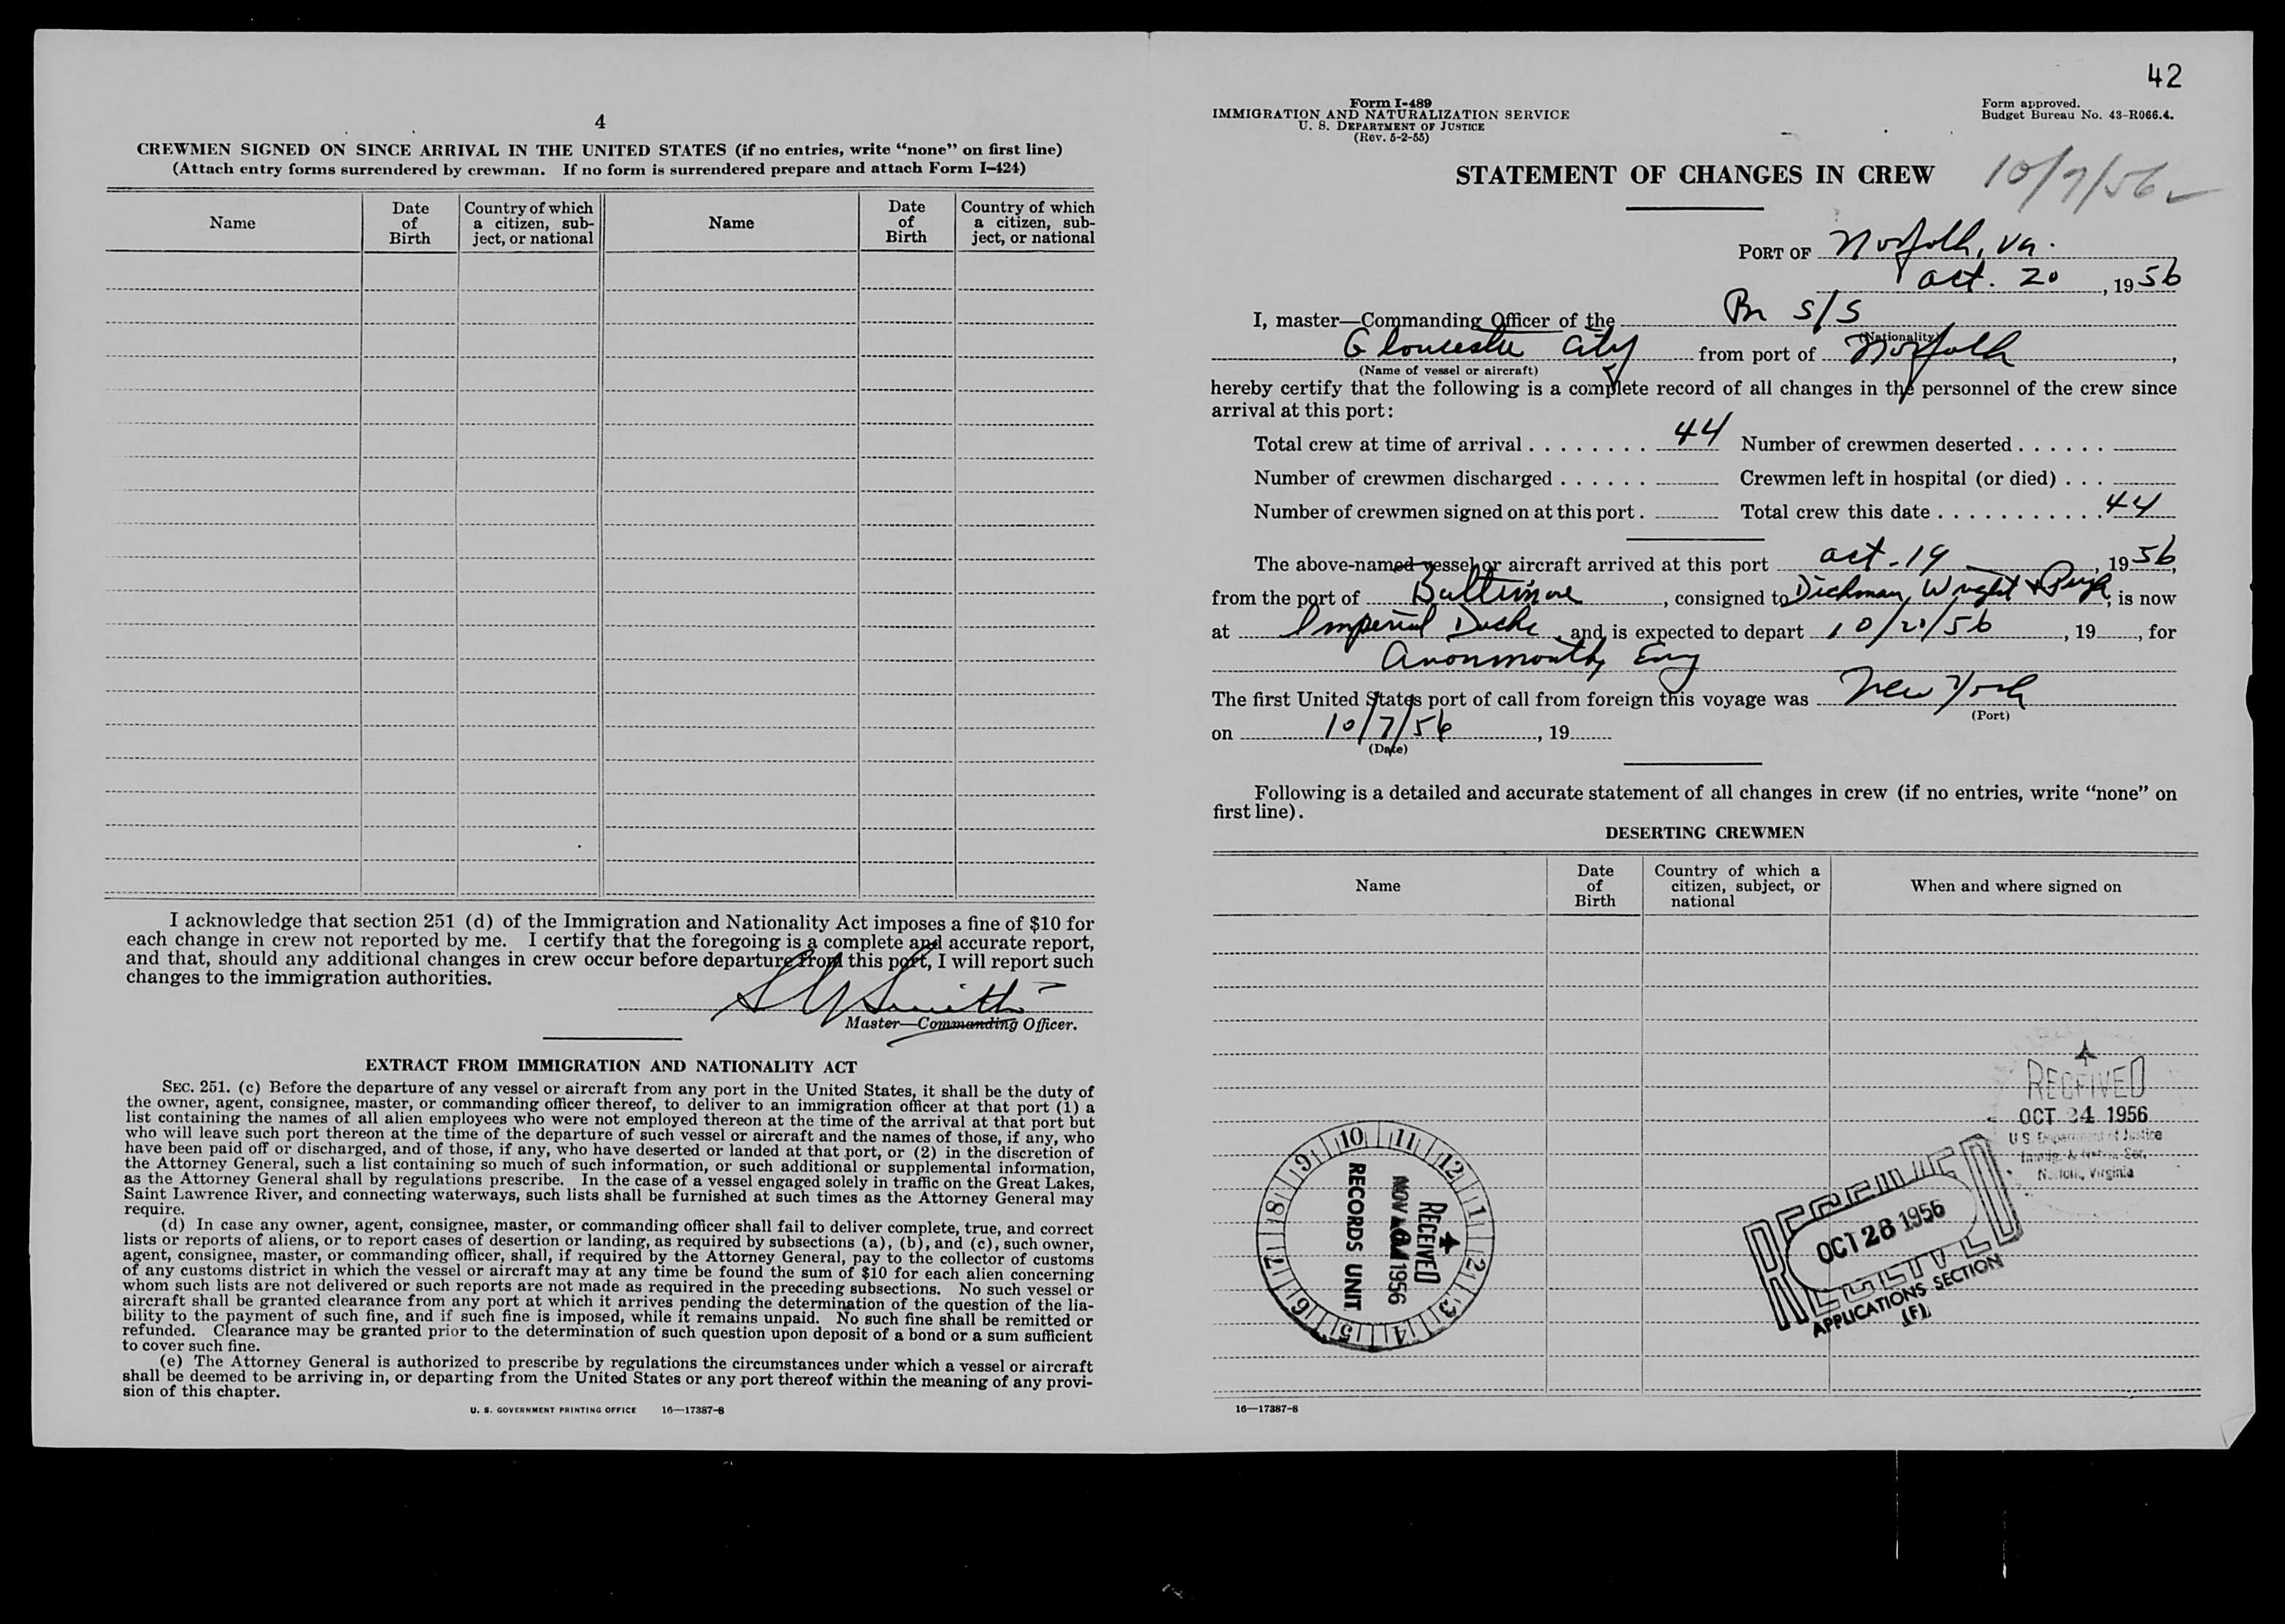 4
CREWMEN SIGNED ON SINCE ARRIVAL IN THE UNITED STATES (if no entries, write “none” on first line)
(Attach entry forms surrendered by crewman. If no form is surrendered prepare and attach Form I-424)
Name Date of Birth Country of which a citizen, sub-ject, or national Name Date of Birth Country of which a citizen, sub-ject, or national
I acknowledge that section 251 (d) of the Immigration and Nationality Act imposes a fine of $10 for
each change in crew not reported by me. I certify that the foregoing is a complete and accurate report,
and that, should any additional changes in crew occur before departure from this port, I will report such
changes to the immigration authorities.
Smith
Master—Commanding Officer.
EXTRACT FROM IMMIGRATION AND NATIONALITY ACT
SEC. 251. (c) Before the departure of any vessel or aircraft from any port in the United States, it shall be the duty of
the owner, agent, consignee, master, or commanding officer thereof, to deliver to an immigration officer at that port (1) a
list containing the names of all alien employees who were not employed thereon at the time of the arrival at that port but
who will leave such port thereon at the time of the departure of such vessel or aircraft and the names of those, if any, who
have been paid off or discharged, and of those, if any, who have deserted or landed at that port, or (2) in the discretion of
the Attorney General, such a list containing so much of such information, or such additional or supplemental information,
as the Attorney General shall by regulations prescribe. In the case of a vessel engaged solely in traffic on the Great Lakes,
Saint Lawrence River, and connecting waterways, such lists shall be furnished at such times as the Attorney General may
require.
(d) In case any owner, agent, consignee, master, or commanding officer shall fail to deliver complete, true, and correct
lists or reports of aliens, or to report cases of desertion or landing, as required by subsections (a), (b), and (c), such owner,
agent, consignee, master, or commanding officer, shall, if required by the Attorney General, pay to the collector of customs
of any customs district in which the vessel or aircraft may at any time be found the sum of $10 for each alien concerning
whom such lists are not delivered or such reports are not made as required in the preceding subsections. No such vessel or
aircraft shall be granted clearance from any port at which it arrives pending the determination of the question of the lia-
bility to the payment of such fine, and if such fine is imposed, while it remains unpaid. No such fine shall be remitted or
refunded. Clearance may be granted prior to the determination of such question upon deposit of a bond or a sum sufficient
to cover such fine.
(e) The Attorney General is authorized to prescribe by regulations the circumstances under which a vessel or aircraft
shall be deemed to be arriving in, or departing from the United States or any port thereof within the meaning of any provi-
sion of this chapter.
U. S. GOVERNMENT PRINTING OFFICE 16—17387-8
42
Form I-489
IMMIGRATION AND NATURALIZATION SERVICE
U. S. DEPARTMENT OF JUSTICE
(Rev. 5-2-55)
Form approved.
Budget Bureau No. 43-R066.4.
STATEMENT OF CHANGES IN CREW
10/7/56
PORT OF Norfolk, Va.
Oct. 20, 1956
I, master—Commanding Officer of the Br S/S
(Nationality)
Gloucester City from port of Norfolk,
(Name of vessel or aircraft)
hereby certify that the following is a complete record of all changes in the personnel of the crew since
arrival at this port:
Total crew at time of arrival 44 Number of crewmen deserted
Number of crewmen discharged Crewmen left in hospital (or died)
Number of crewmen signed on at this port. Total crew this date 44
The above-named vessel or aircraft arrived at this port Oct. 19, 1956,
from the port of Baltimore, consigned to Dichman, Wright & Pugh, is now
at Imperial Docks, and is expected to depart 10/20/56, 19, for
Avonmouth, Eng
The first United States port of call from foreign this voyage was New York
(Port)
on 10/7/56, 19
(Date)
Following is a detailed and accurate statement of all changes in crew (if no entries, write “none” on
first line).
DESERTING CREWMEN
Name Date of Birth Country of which a citizen, subject, or national When and where signed on
RECEIVED
OCT 24 1956
U S Department of Justice
Immig. & Natur. Ser.
Norfolk, Virginia
10 11 12 1 2 3 4 5 6 7 8 9
RECEIVED
NOV 1956
RECORDS UNIT
RECEIVED
OCT 28 1956
RECEIVED
APPLICATIONS SECTION
(F)
16—17387-8